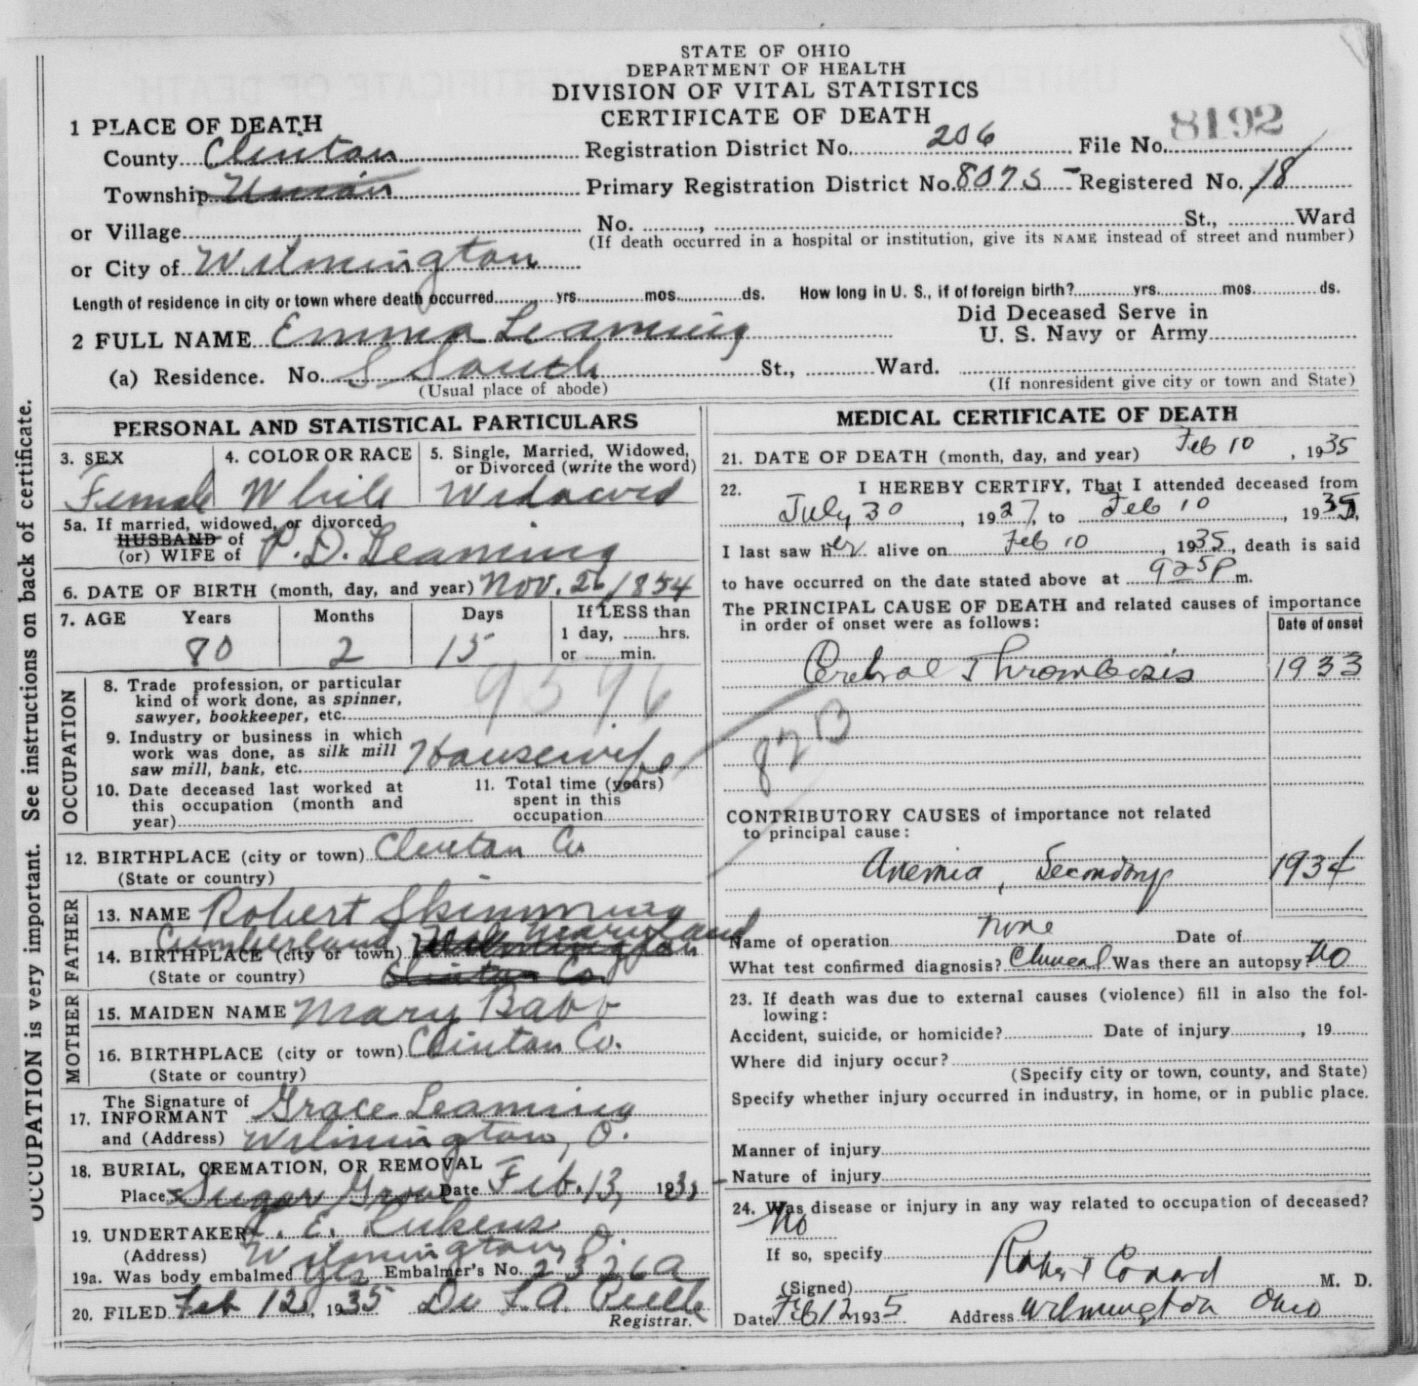 STATE OF OHIO
DEPARTMENT OF HEALTH
DIVISION OF VITAL STATISTICS
CERTIFICATE OF DEATH
1 PLACE OF DEATH
County Clinton Registration District No. 206 File No. 8192
Township Union Primary Registration District No. 8075 Registered No. 18
or Village No. , St., Ward
(If death occurred in a hospital or institution, give its NAME instead of street and number)
or City of Wilmington
Length of residence in city or town where death occurred yrs. mos. ds. How long in U. S., if of foreign birth? yrs. mos. ds.
2 FULL NAME Emma Leaming Did Deceased Serve in U. S. Navy or Army
(a) Residence. No. S South St., Ward.
(Usual place of abode) (If nonresident give city or town and State)
PERSONAL AND STATISTICAL PARTICULARS
3. SEX 4. COLOR OR RACE 5. Single, Married, Widowed, or Divorced (write the word)
Female White Widowed
5a. If married, widowed, or divorced
HUSBAND of
(or) WIFE of P. D. Leaming
6. DATE OF BIRTH (month, day, and year) Nov. 26, 1854
7. AGE Years Months Days If LESS than
80 2 15 1 day, hrs.
or min.
OCCUPATION
8. Trade profession, or particular
kind of work done, as spinner,
sawyer, bookkeeper, etc. 9596
9. Industry or business in which
work was done, as silk mill
saw mill, bank, etc. Housewife
10. Date deceased last worked at
this occupation (month and
year)
11. Total time (years)
spent in this
occupation
12. BIRTHPLACE (city or town) Clinton Co
(State or country)
FATHER
13. NAME Robert Skimming
Cumberland Maryland
14. BIRTHPLACE (city or town) Wilmington
(State or country) Clinton Co.
MOTHER
15. MAIDEN NAME Mary Babb
16. BIRTHPLACE (city or town) Clinton Co.
(State or country)
17. The Signature of
INFORMANT Grace Leaming
and (Address) Wilmington, O.
18. BURIAL, CREMATION, OR REMOVAL
Place Sugar Grove Date Feb. 13, 193
19. UNDERTAKER E. Lukens
(Address) Wilmington, O.
19a. Was body embalmed Yes Embalmer's No. 2326A
20. FILED Feb 12, 1935
Registrar.
OCCUPATION is very important. See instructions on back of certificate.
MEDICAL CERTIFICATE OF DEATH
21. DATE OF DEATH (month, day, and year) Feb 10, 1935
22. I HEREBY CERTIFY, That I attended deceased from
July 30, 1927, to Feb 10, 1935,
I last saw her alive on Feb 10, 1935, death is said
to have occurred on the date stated above at 925 P m.
The PRINCIPAL CAUSE OF DEATH and related causes of importance
in order of onset were as follows: Date of onset
Cerebral Thrombosis 1933
82 B
CONTRIBUTORY CAUSES of importance not related
to principal cause:
Anemia, Secondary 1934
Name of operation none Date of
What test confirmed diagnosis? Clinical Was there an autopsy? No
23. If death was due to external causes (violence) fill in also the fol-
lowing:
Accident, suicide, or homicide? Date of injury , 19
Where did injury occur?
(Specify city or town, county, and State)
Specify whether injury occurred in industry, in home, or in public place.
Manner of injury
Nature of injury
24. Was disease or injury in any way related to occupation of deceased?
No
If so, specify
(Signed) Robert Conard M. D.
Date Feb 12 1935 Address Wilmington Ohio